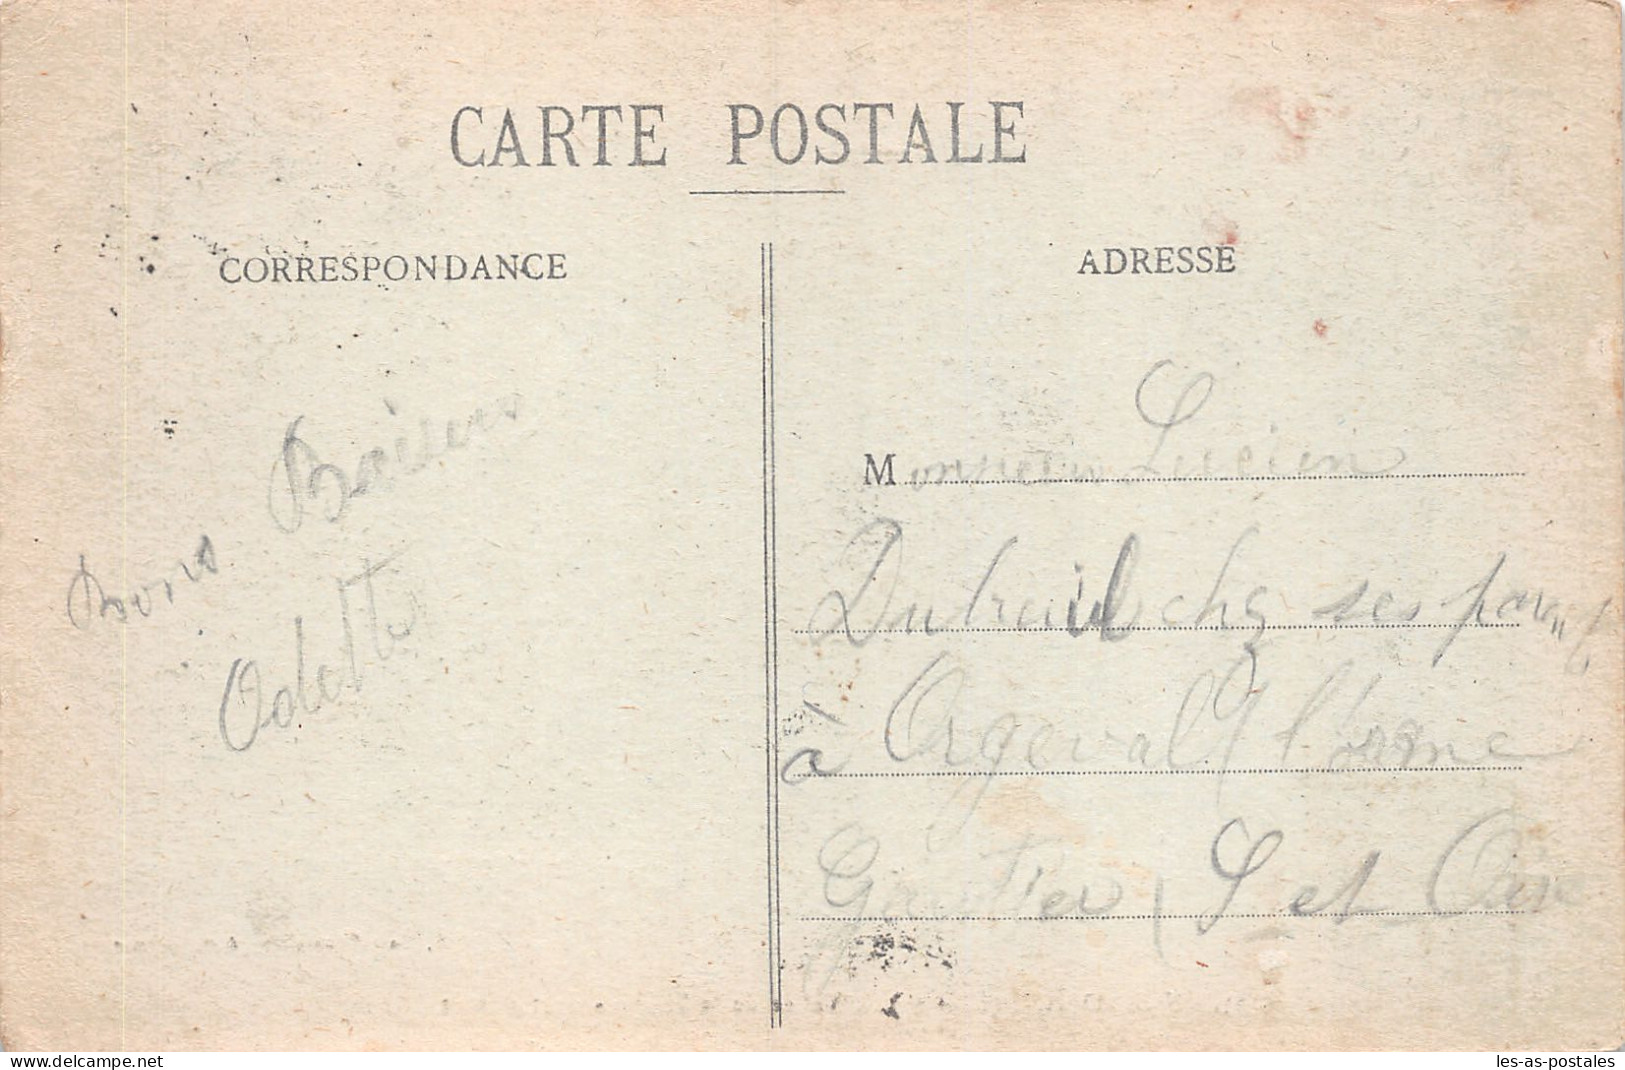 CARTE POSTALE
CORRESPONDANCE
Bons Baisers
Odette
ADRESSE
Monsieur Lucien
Dutreuil chs ses parents
à Orgeval
Gautier (S et Oise
delcampe.net
les-as-postales